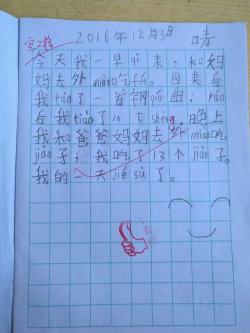 2016年12月3日 晴
今天我一早qǐ来，和妈
妈去外miàn吃fàn。回来后
我tán了一首钢qín曲；rán
后我tiào了10下shéng，晚上
我和爸爸妈妈去外miàn吃
jiǎo子；我吃了13个jiǎo子。
我的一天jié sù了。